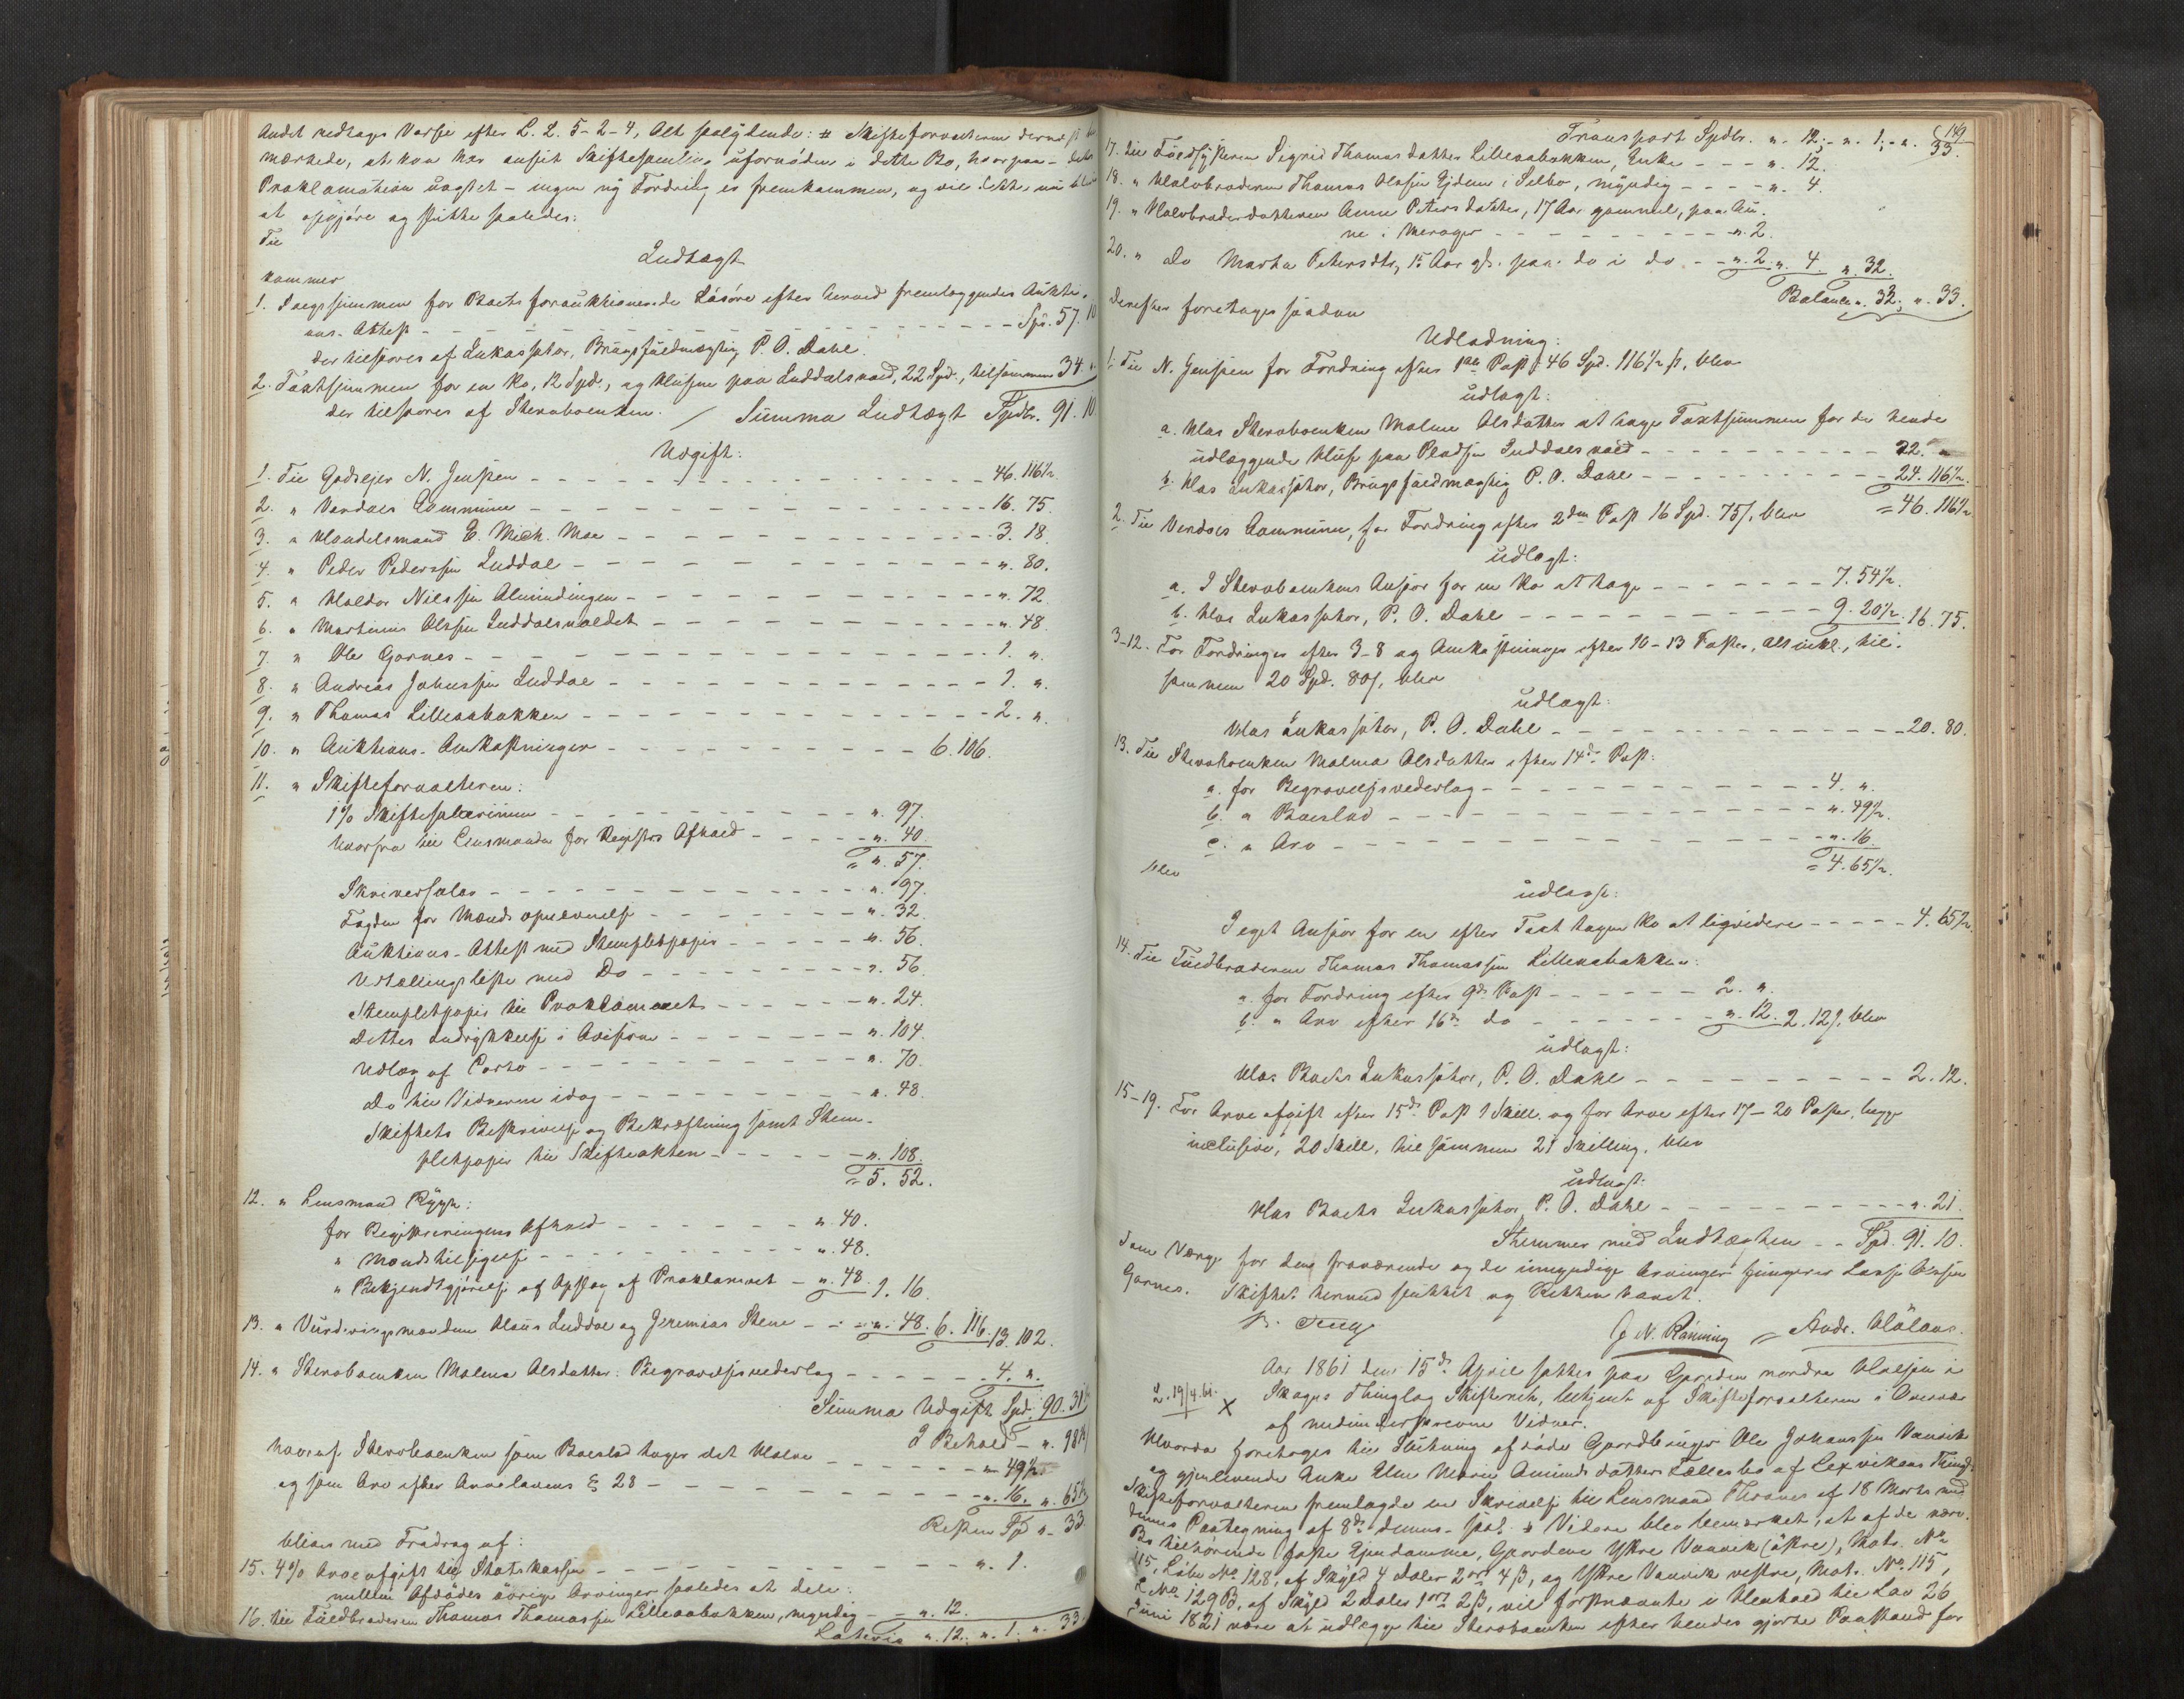 Andet vedtages Værge efter L. L. 5-2-4, Alt saalydende: # Skifteforvalteren derved
mærkede, at han har anseet Skiftesamling ufornøden i dette Bo, hvorpaa - dets
Proklamation uagtet - ingen ny Fordring er fremkommen, og vil dette nu blive
at opgjøre og slutte saaledes:
Til
Indtægt
kommer
1. Salgssummen for Boets forauktionerede Løsøre efter herved fremlæggendes Aukti-
ons-Attest - - - Spd. 57. 10
der tilsvares af Inkassator, Brugsfuldmægtig P. O. Dahl.
2. Taxtsummen for en Ko, 12 Spd., og Husene paa Inddalsvald, 22 Spd., tilsammen 34. "
der tilsvares af Stervboenken. / Summa Indtægt Spdlr. 91. 10
Udgift:
1. Til Godsejer N. Jenssen - - - 46. 116½
2. " Værdals Commune - - - 16. 75.
3. " Handelsmand E. Mich. Moe - - - 3. 18.
4. " Peder Pederssen Inddal - - - ". 80.
5. " Haldor Nilssen Almindingen - - - ". 72
6. " Martinus Olssen Inddalsvaldet - - - ". 48
7. " Ole Garnes - - - 1. ".
8. " Andreas Johnssen Inddal - - - 1. ".
9. " Thomas Lilleaabakken - - - 2. ".
10. " Auktions-Omkostninger - - - 6. 106.
11. " Skifteforvalteren:
1% Skiftesalarium - - - ". 97.
hvorfra til Lensmanden for Registrs Afhold - - - ". 40
= ". 57.
Skriversalar - - - ". 97.
Fogden for Mænds opnævnelse - - - ". 32
Auktions-Attest med Stempletpapir - - - ". 56.
Udtællingsliste med Do - - - ". 56.
Stempletpapir til Proklamaet - - - ". 24.
dettes Indrykkelse i Avisen - - - ". 104
Udlæg af Porto - - - ". 70.
Do til Vidnerne idag - - - ". 48.
Skiftets Beskrivelse og Bekræftning samt Stem-
pletpapir til Skifteakten - - - ". 108.
= 5. 52.
12. " Lensmand Rygh:
for Registreringens Afhold - - - ". 40.
" Mænds tilsigelse - - - ". 48.
" Bekjendtgjørelse og Opslag af Proklamaet - ". 48. 1. 16.
13. " Vurderingsmændene Claus Inddal og Jeremias Stene - - - ". 48. 6. 116. 13. 102.
14. " Stervboenken Malena Olsdatter: Begravelsesvederlag - - - 4. ".
Summa Udgift Spd. 90. 31½
I Behold - ". 98½
hvoraf Stervboenken som Boeslod tager det Halve - - - ". 49½
og som Arv efter Arvelovens § 28 - - - ". 16. ". 65½
Resten Spd ". 33
bliver med Fradrag af:
15. 4% Arveafgift til Statskassen - - - ". 1.
mellem Afdødes øvrige Arvinger saaledes at dele:
16. til Fuldbroderen Thomas Thomassen Lilleaabakken, myndig - - ". 12.
Lateris ". 12; ". 1; ". 33.
(149
Transport Spdlr. ". 12; - ". 1; - ". 33.
17. til Fuldsøsteren Sigrid Thomasdatter Lilleaabakken, Enke - - - ". 12.
18. " Halvbroderen Thomas Olssen Ejdem i Selbo, myndig - - - ". 4.
19. " Halvbroderdatteren Anne Petersdatter, 17 Aar gammel, paa Au-
ne i Meraager - - - ". 2.
20. " Do Martha Petersdtr, 15 Aar gl. paa do i do - - ". 2. ". 4 ". 32.
Balance ". 32; ". 33.
Derefter foretages saadan
Udlodning:
1. Til N. Jenssen for Fordring efter 1ste Post, 46 Spd. 116½ s, blev
udlagt:
a. Hos Stervboenken Malene Olsdatter at tage Taxtsummen for de hende
udlæggende Huse paa Pladsen Inddalsvald - - - 22. "
b. Hos Inkassator, Brugsfuldmægtig P. O. Dahl - - - 24. 116½.
= 46. 116½
2. Til Værdals Commune, for Fordring efter 2den Post 16 Spd. 75 s, blev
udlagt:
a. I Stervboenkens Ansvar for en Ko at tage - - - 7. 54½.
b. Hos Inkassator, P. O. Dahl - - - 9. 20½. 16. 75.
3-12. For Fordringer efter 3-8 og Omkostninger efter 10-13 Poster, alt inkl., til-
sammen 20 Spd. 80 s, blev
udlagt:
Hos Inkassator, P. O. Dahl - - - 20. 80.
13. Til Stervboenken Malena Olsdatter efter 14de Post:
a. for Begravelsesvederlag - - - 4. ".
b. " Boeslod - - - ". 49½.
c. " Arv - - - ". 16
= 4. 65½.
blev
udlagt:
I eget Ansvar for en efter Taxt tagen Ko at liqvidere - - - 4. 65½.
14. Til Fuldbroderen Thomas Thomassen Lilleaabakken:
a. for Fordring efter 9de Post - - - 2. ".
b. " Arv efter 16de do - - - ". 12. 2. 12 s, blev
udlagt:
Hos Boets Inkassator, P. O. Dahl - - - 2. 12.
15-19. For Arveafgift efter 15de Post 1 Skill. og for Arv efter 17-20 Poster, begge
inclusive, 20 Skill, tilsammen 21 Skilling, blev
udlagt:
Hos Boets Inkassator, P. O. Dahl - - - ". 21.
Stemmer med Indtægten - - Spd. 91. 10.
Som Værge for den fraværende og de umyndige Arvinger fungerer Lasse Olssen
Garnes. Skiftet hermed sluttet og Retten hævet.
J. N. Rønning Andr. Oläus
Aar 1861 den 15de April sattes paa Gaarden nordre Halsen i
L. 19/4.61. X Skogns Thinglag Skifteret, betjent af Skifteforvalteren i Overvær
af nedenunderskrevne Vidner.
Hvorda foretoges til Slutning afdøde Gaardbruger Ole Johanssen Vandvik
og gjenlevende Enke Elen Marie Amundsdatters Fællesbo af Lexvikens Thingl.
Skifteforvalteren fremlagde en Skrivelse til Lensmand Thranes af 18 Marts med
dennes Paategning af 8de dennes - saal. # Videre blev bemærket, at af de nærv.
Bo tilhørende faste Ejendomme, Gaardene Ytre Vanvik (østre), Matr. No
115, Løbe No 128, af Skyld 4 Daler 2 ort 4 β, og Ytre Vanvik vestre, Mat. No 115,
L. No 129 B. af Skyld 2 Daler 1 ort 2 β, vil førstnævnte i Henhold til Lov 26
Juni 1821 være at udlægge til Stervboenken efter hendes gjorte Paastand for